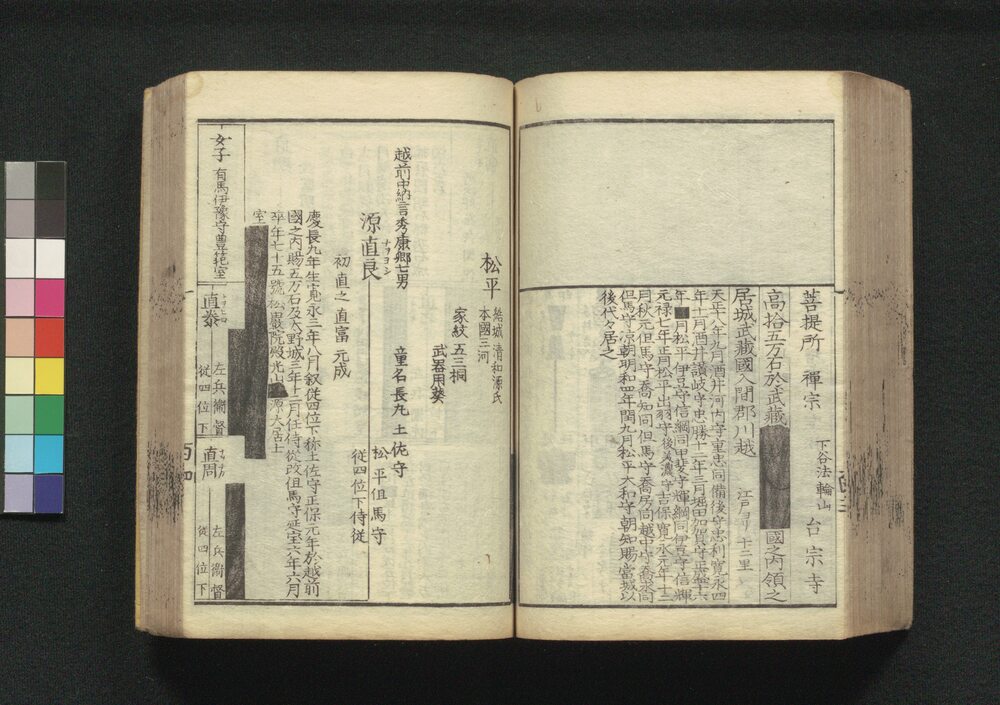 菩提所 禅宗 下谷法輪山 台宗寺
高拾五万石於武藏 國之内領之
居城武藏國入間郡川越 江戸ヨリ 十三里
天正十八年九月酒井河内守重忠同備後守忠利寛永四
年十一月酒井讃岐守忠勝十二年三月堀田加賀守正盛十六
年 月松平伊豆守信綱同甲斐守輝綱同伊豆守信輝
元禄七年正月松平出羽守後美濃守吉保寛永元年十二
月秋元但馬守喬知同但馬守喬房同越中守喬求同
但馬守凉朝明和四年閏九月松平大和守朝知賜當城以
後代々居之
松平 結城 清和源氏
本國三河
家紋 五三桐
武器用葵
越前中納言秀康郷七男
源直良 ナヲヨシ
童名長丸 土佐守
松平但馬守
從四位下侍従
初直之 直富 元成
慶長九年生寛永三年八月叙從四位下称土佐守正保元年於越前
國之内賜五万石及大野城三年二月任侍從改但馬守延宝六年六月
卒年七十五號松巌院殿光山 源大居士
室
女子 有馬伊豫守豊範室
直泰
左兵衛督
從四位下
直周
左兵衛督
從四位下